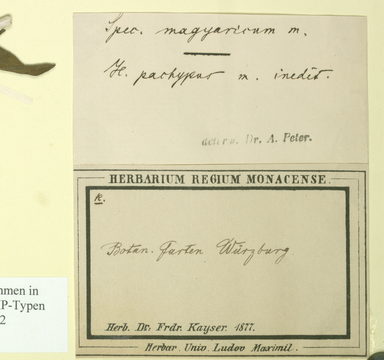 Spec. magyaricum m.
H. pachypus m. inedit.
determ. Dr. A. Peter.
HERBARIUM REGIUM MONACENSE.
k.
Botan. Garten Würzburg.
Herb. Dr. Frdr. Kayser. 1877.
Herbar. Univ. Ludov. Maximil.
men in
P-Typen
2